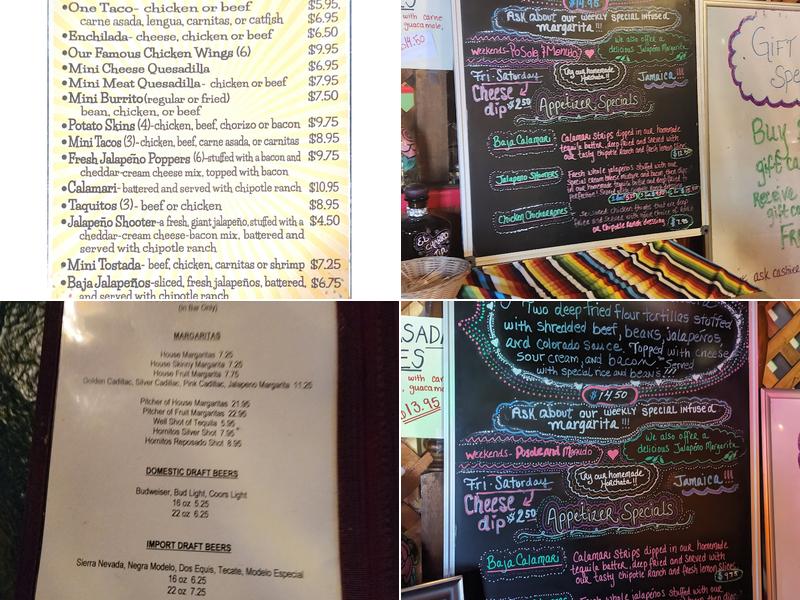 •One Taco- chicken or beef $5.95,
carne asada, lengua, carnitas, or catfish $6.95
•Enchilada- cheese, chicken or beef $6.50
•Our Famous Chicken Wings (6) $9.95
•Mini Cheese Quesadilla $6.95
•Mini Meat Quesadilla- chicken or beef $7.95
•Mini Burrito(regular or fried) $7.50
bean, chicken, or beef
•Potato Skins (4)-chicken, beef, chorizo or bacon $9.75
•Mini Tacos (3)-chicken, beef, carne asada, or carnitas $8.95
•Fresh Jalapeño Poppers (6)-stuffed with a bacon and $9.75
cheddar-cream cheese mix, topped with bacon
•Calamari- battered and served with chipotle ranch $10.95
•Taquitos (3)- beef or chicken $8.95
•Jalapeño Shooter-a fresh, giant jalapeño, stuffed with a $4.50
cheddar-cream cheese-bacon mix, battered and
served with chipotle ranch
•Mini Tostada- beef, chicken, carnitas or shrimp $7.25
•Baja Jalapeños-sliced, fresh jalapeños, battered, $6.75
and served with chipotle ranch
ES
with carne
guacamole,
14.50
$14.95
Ask about our weekly special infused
margarita !!!
weekends- Posole & Menudo
We also offer a
delicious Jalapeño Margarita
Fri-Saturday
Cheese
dip $2.50
Try our homemade
Horchata!!
Jamaica!!!
Appetizer Specials
Baja Calamari
Calamari Strips dipped in our homemade
tequila batter, deep fried and served with
our tasty chipotle Ranch and fresh lemon slices
Jalapeño Shooters
Fresh whole jalapeños stuffed with our
Special cream cheese mixture and bacon, then dip
in our homemade tequila batter and deep fried to
perfection!
Chicken Chicharrones
or Chipotle Ranch dressing
$7.95
GIFT
Spe
Buy
gift ca
Receive
gift c
FR
ask cashier
(In Bar Only)
MARGARITAS
House Margaritas 7.25
House Skinny Margaritas 7.25
House Fruit Margarita 7.75
Golden Cadillac, Silver Cadillac, Pink Cadillac, Jalapeno Margarita 11.25
Pitcher of House Margaritas 21.95
Pitcher of Fruit Margaritas 22.95
Well Shot of Tequila 5.95
Hornitos Silver Shot 7.95
Hornitos Reposado Shot 8.95
DOMESTIC DRAFT BEERS
Budweiser, Bud Light, Coors Light
16 oz 5.25
22 oz 6.25
IMPORT DRAFT BEERS
Sierra Nevada, Negra Modelo, Dos Equis, Tecate, Modelo Especial
16 oz 6.25
22 oz 7.25
SADA
ES
with car
guacam
$13.95
Two deep fried flour tortillas stuffed
with shredded beef, beans, jalapeños,
and colorado sauce. Topped with cheese
sour cream, and bacon. Served
with special rice and beans !!!
$14.50
Ask about our weekly special infused
margarita !!!
weekends- Posole and Menudo
We also offer a
delicious Jalapeño Margarita
Fri-Saturday
Cheese
dip $2.50
Try our homemade
Horchata!!
Jamaica!!!
Appetizer Specials
Baja Calamari
Calamari Strips dipped in our homemade
tequila batter, deep fried and served with
our tasty chipotle Ranch and fresh lemon slices
$9.75
Fresh whole jalapeños stuffed with our